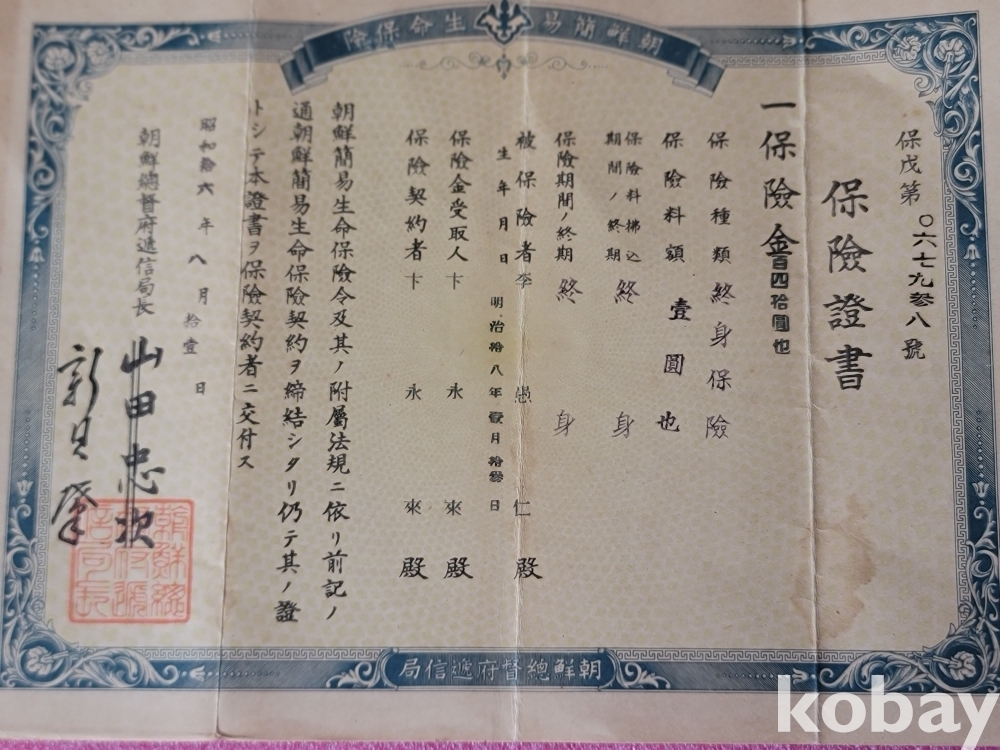 朝鮮簡易生命保險
保戊第〇六七九参八號
保險證書
一保險金百四拾圓也
保險種類終身保險
保險料額壹圓也
保險料拂込
期間ノ終期 終身
保險期間ノ終期 終身
被保險者李愚仁殿
生年月日 明治拾八年壹月拾參日
保險金受取人卞永來殿
保險契約者卞永來殿
朝鮮簡易生命保險令及其ノ附屬法規ニ依リ前記ノ
通朝鮮簡易生命保險契約ヲ締結シタリ仍テ其ノ證
トシテ本證書ヲ保險契約者ニ交付ス
昭和拾六年八月拾壹日
朝鮮總督府遞信局長 山田忠次
新貝肇
朝鮮總督府遞信局
kobay